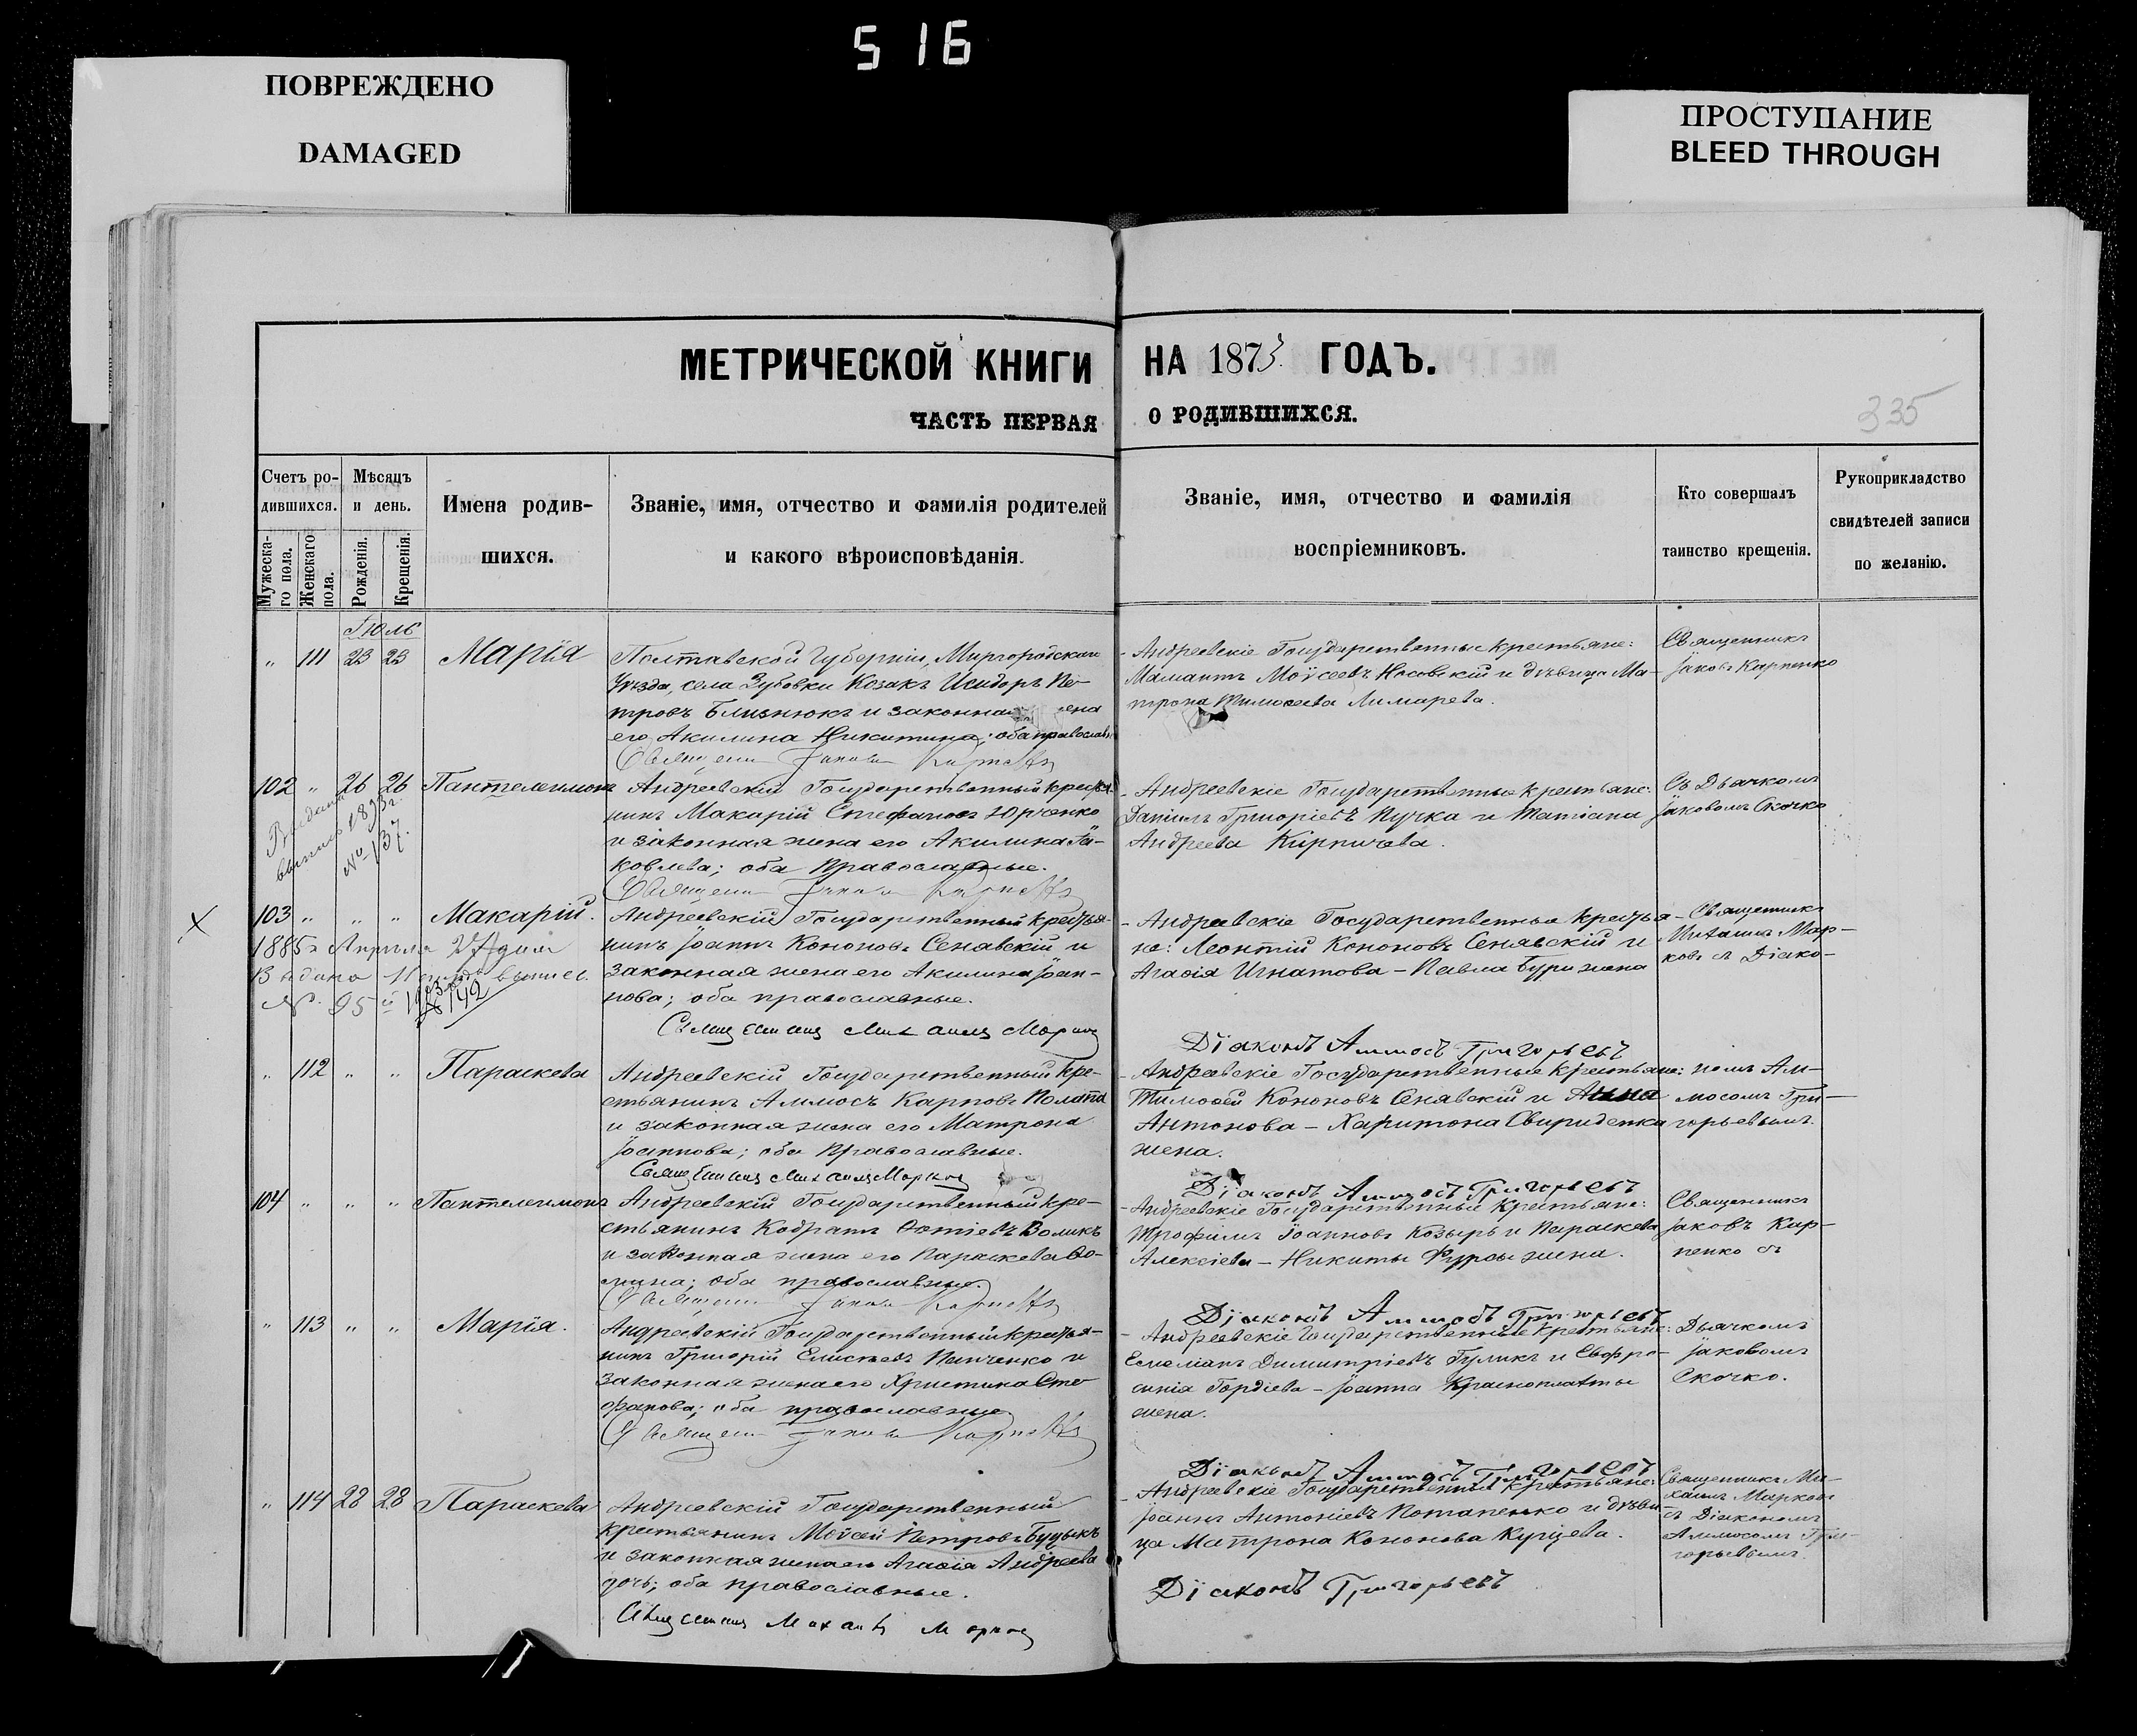 516
ПОВРЕЖДЕНО
DAMAGED
ПРОСТУПАНИЕ
BLEED THROUGH
МЕТРИЧЕСКОЙ КНИГИ НА 1873 ГОДЪ.
ЧАСТЬ ПЕРВАЯ О РОДИВШИХСЯ.
335
Счетъ ро-
дившихся.
Мужеска-
го пола.
Женскаго
пола.
Мѣсяцъ
и день.
Рожденія.
Крещенія.
Имена родив-
шихся.
Званіе, имя, отчество и фамилія родителей
и какого вѣроисповѣданія.
Званіе, имя, отчество и фамилія
воспріемниковъ.
Кто совершалъ
таинство крещенія.
Рукоприкладство
свидѣтелей записи
по желанію.
Іюль
" 111 23 23 Марія
Полтавской Губерніи, Миргородскаго
Уѣзда, села Зубовки Козакъ Исидоръ Пе-
тровъ Близнюкъ и законная ена
его Акилина Никитина; оба православн
Андреевскіе Государственные крестьяне:
Мамантъ Моѵсеевъ Носовскій и дѣвица Ма-
трона Тимоѳеева Лимарева.
Священникъ
Іаковъ Карпенко
102 " 26 26 Пантелеимонъ
Выдана
выпись 1893 г.
№ 137.
Андреевскій Государственный крестья
нинъ Макарій Стефановъ Юрченко
и законная жена его Акилина Іа-
ковлева; оба Православные.
Андреевскіе Государственные крестьяне:
Даніилъ Григоріевъ Пучка и Татіана
Андреева Кирпичева.
Съ Дьячкомъ
Іаковомъ Скочко
Х
103 " " " Макарій.
1885 г Апрѣля 27 дня
Выдана выпис.
№. 95 и 1903
№ 142
Андреевскій Государственный крестья-
нинъ Іоаннъ Кононовъ Сенявскій и
законная жена его Акилина Іоан-
нова; оба православные.
Священникъ Михаилъ Марковъ
Андреевскіе Государственные крестья-
не: Леонтій Кононовъ Сенявскій и
Агаѳія Игнатова – Павла Бури жена
Діаконъ Аммосъ Григорьевъ
Священникъ
Михаилъ Мар-
ковъ съ Діако-
" 112 " " Параскева
Андреевскій Государственный кре-
стьянинъ Аммосъ Карповъ
и законная жена его Матрона
Іоаннова; оба Православные.
Священникъ Михаилъ Марковъ
Андреевскіе Государственные крестьяне:
Тимоѳей Кононовъ Сенявскій и Анна
Антонова – Харитона Свириденка
жена.
Діаконъ Аммосъ Григорьевъ
номъ Ам-
мосомъ Гри-
горьевымъ.
104 " " " Пантелеимонъ
Андреевскій Государственный кре-
стьянинъ Кодратъ Ѳотіевъ Воликъ
и законная жена его Параскева Ѳо-
мина; оба православные.
Андреевскіе Государственные крестьяне:
Трофимъ Іоанновъ Козырь и Параскева
Алексіева – Никиты жена.
Діаконъ Аммосъ Григорьевъ
Священникъ
Іаковъ Кар-
пенко съ
" 113 " " Марія.
Андреевскій Государственный крестья-
нинъ Григорій Елисѣевъ Панченко и
законная жена его Христина Сте
фанова; оба православные
Андреевскіе Государственные крестьяне:
Емеліанъ Димитріевъ Гуликъ и Евфро-
синія Гордіева – Іоанна
жена.
Діаконъ Аммосъ Григорьевъ
Дьячкомъ
Іаковомъ
Скочко.
" 114 28 28 Параскева
Андреевскій Государственный
крестьянинъ Моѵсей Петровъ Буцыкъ
и законная жена его Агаѳія Андреева
дочь; оба православные.
Священникъ Михаилъ Марковъ
Андреевскіе Государственные крестьяне:
Іоаннъ Антоніевъ Потапенко и дѣви-
ца Матрона Кононова Купцева.
Діаконъ Григорьевъ
Священникъ Ми-
хаилъ Марковъ
съ Діакономъ
Аммосомъ Гри-
горьевымъ.